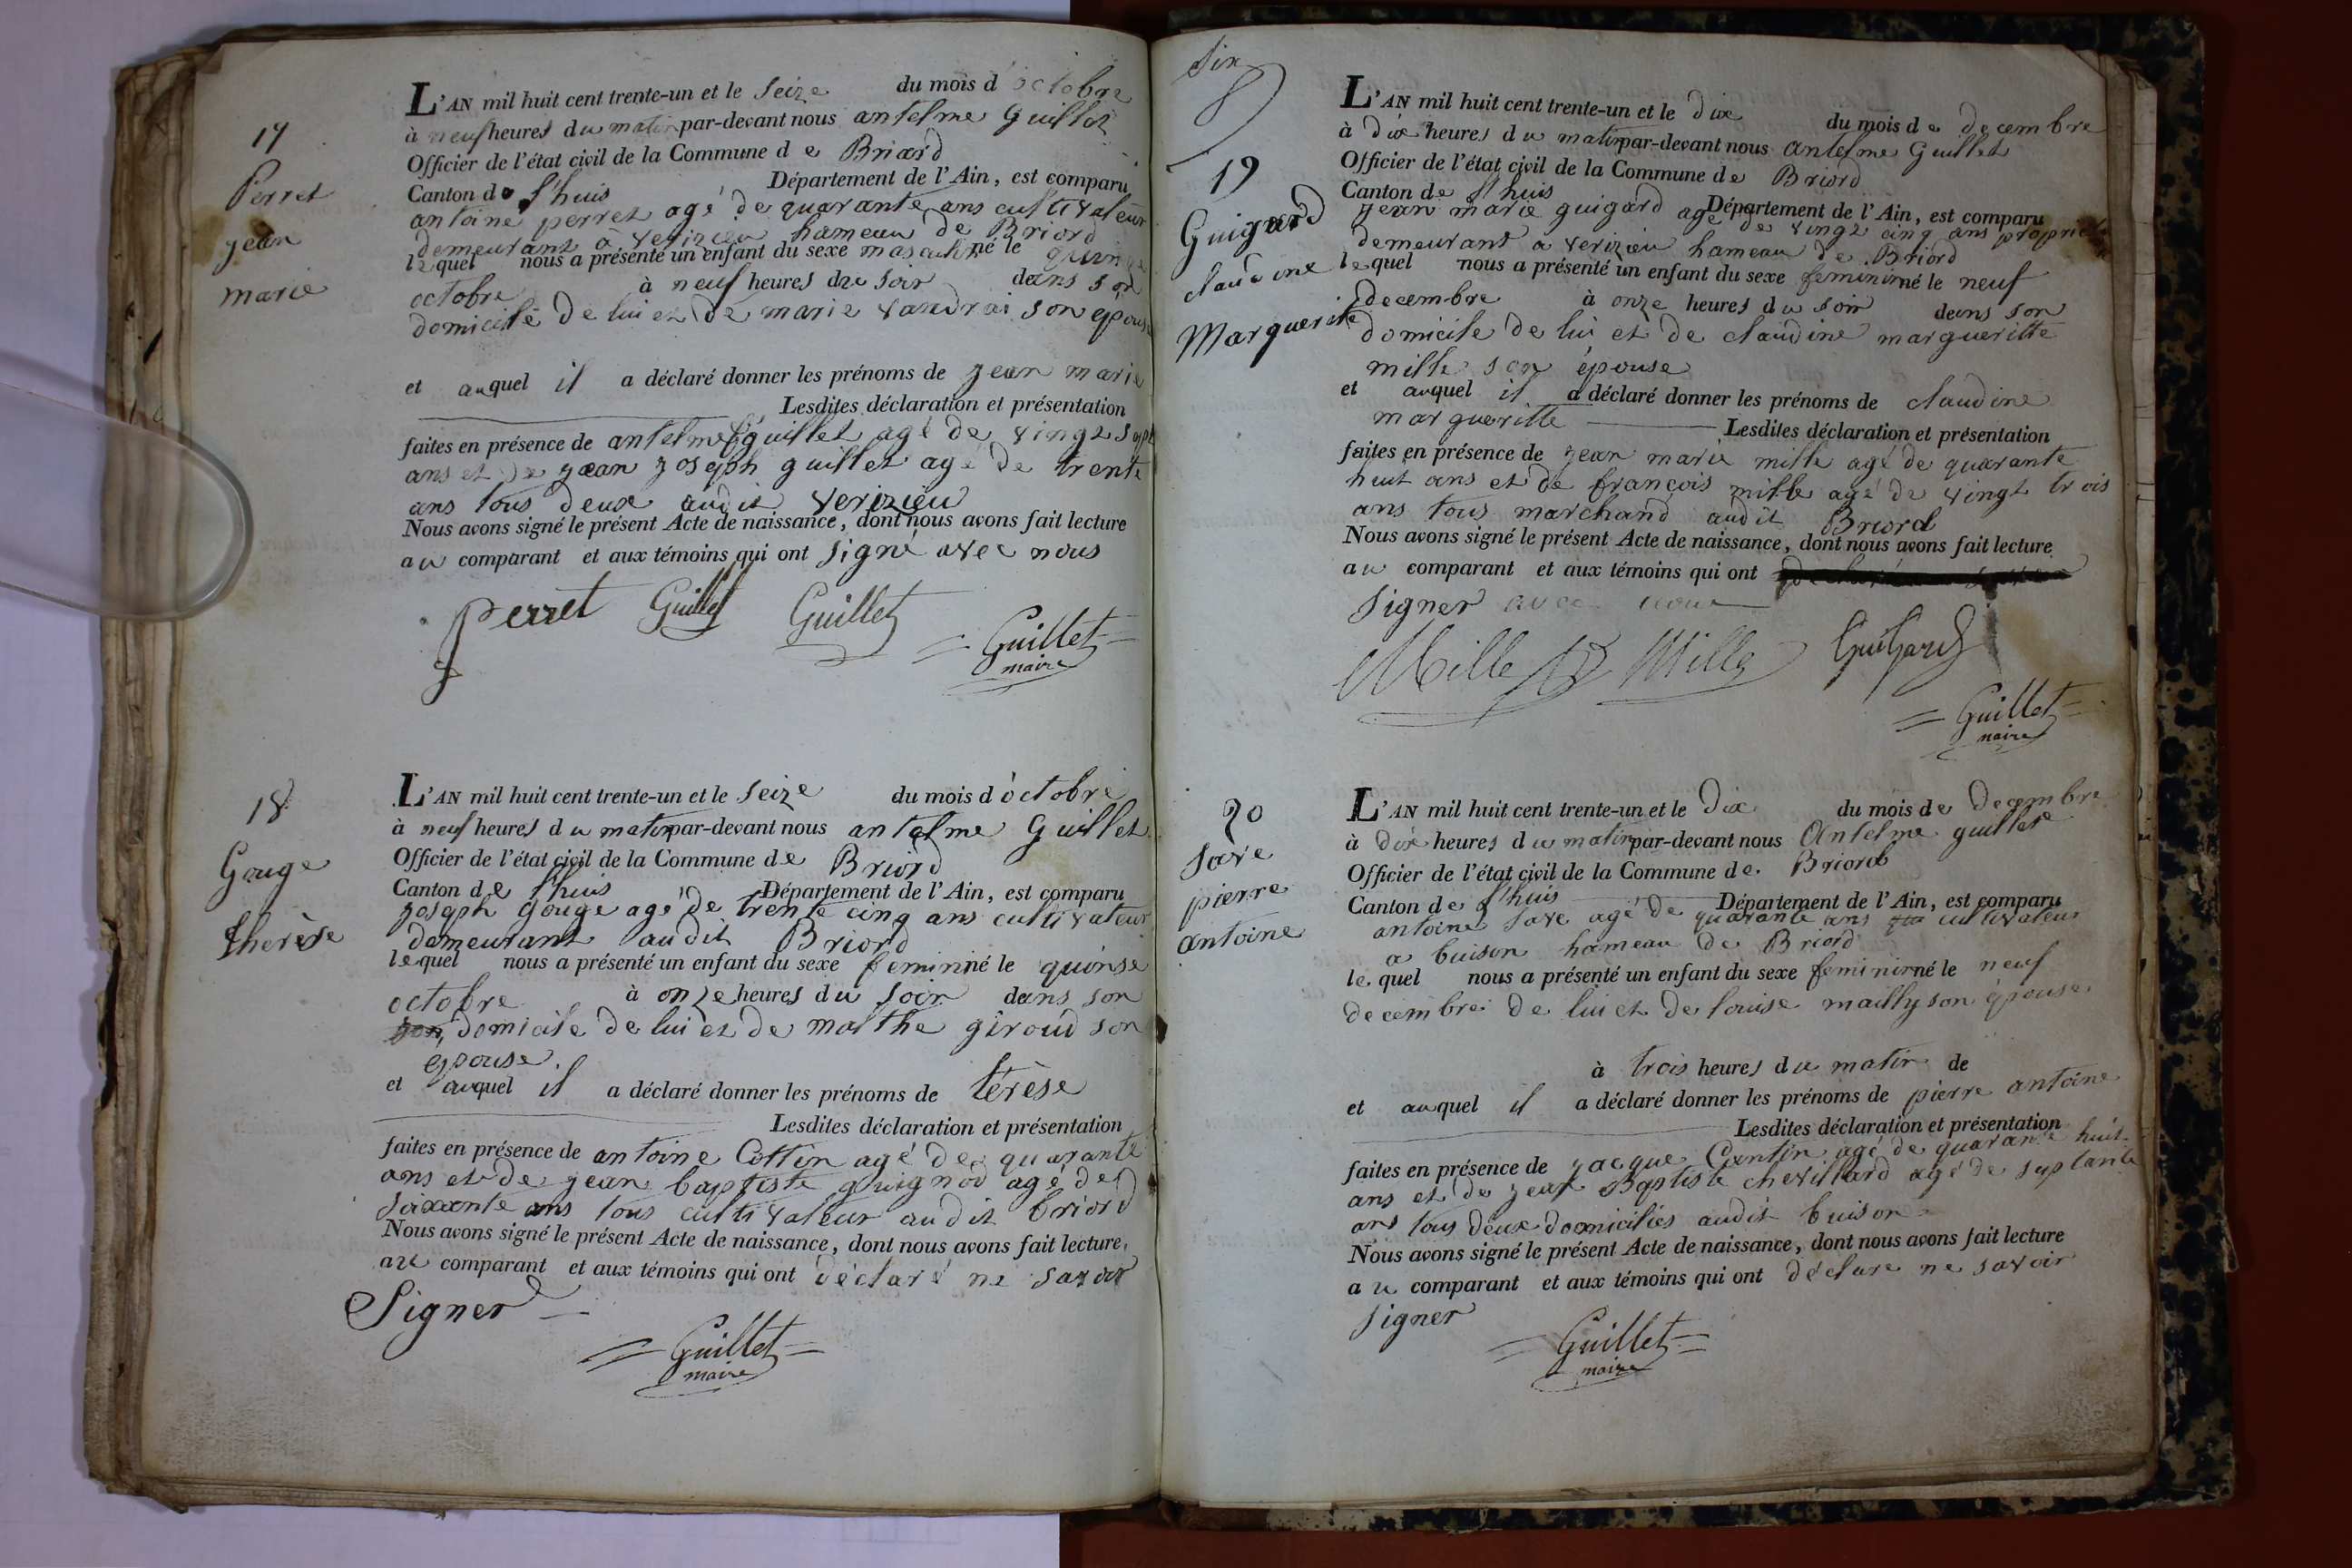 17
Perret
jean
marie
L'AN mil huit cent trente-un et le seize du mois d'octobre
à neuf heures du matin par-devant nous antelme Guillet
Officier de l'état civil de la Commune de Briord
Canton de l'huis Département de l'Ain, est comparu
antoine perret agé de quarante ans cultivateur
demeurant à verizieu hameau de Briord
lequel nous a présenté un enfant du sexe masculin né le quinze
octobre à neuf heures du soir dans son
domicile de lui et de marie vaudrai son épouse
et auquel il a déclaré donner les prénoms de jean marie
Lesdites déclaration et présentation
faites en présence de antelme guillet agé de vingt sept
ans et de jean joseph guillet agé de trente
ans tous deux audit verizieu
Nous avons signé le présent Acte de naissance, dont nous avons fait lecture
au comparant et aux témoins qui ont signé avec nous
Perret Guillet Guillet
Guillet
maire
18
Gouge
therèse
L'AN mil huit cent trente-un et le seize du mois d'octobre
à neuf heures du matin par-devant nous antelme Guillet
Officier de l'état civil de la Commune de Briord
Canton de l'huis Département de l'Ain, est comparu
joseph gouge agé de trente cinq ans cultivateur
demeurant audit Briord
lequel nous a présenté un enfant du sexe feminin né le quinse
octobre à onze heures du soir dans son
son domicile de lui et de malthe giroud son
epouse.
et auquel il a déclaré donner les prénoms de térèse
Lesdites déclaration et présentation
faites en présence de antoine Cottin agé de quarante
ans et de jean baptiste guignod agé de
soixante ans tous cultivateur audit briord
Nous avons signé le présent Acte de naissance, dont nous avons fait lecture,
au comparant et aux témoins qui ont déclaré ne savoir
Signer
Guillet
maire
Six
19
Guigard
claudine
Marguerite
L'AN mil huit cent trente-un et le dix du mois de decembre
à dix heures du matin par-devant nous antelme Guillet
Officier de l'état civil de la Commune de Briord
Canton de l'huis Département de l'Ain, est comparu
jean marie guigard agé de vingt cinq ans propriet
demeurant a verizieu hameau de Briord
lequel nous a présenté un enfant du sexe feminin né le neuf
decembre à onze heures du soir dans son
domicile de lui et de claudine margueritte
mille son épouse
et auquel il a déclaré donner les prénoms de claudine
margueritte Lesdites déclaration et présentation
faites en présence de jean marie mille agé de quarante
huit ans et de francois mille agé de vingt trois
ans tous marchand audit Briord
Nous avons signé le présent Acte de naissance, dont nous avons fait lecture
au comparant et aux témoins qui ont
signer avec nous
Mille Mille Guigard
Guillet
maire
20
Save
pierre
antoine
L'AN mil huit cent trente-un et le Dix du mois de Decembre
à dix heures du matin par-devant nous Antelme guillet
Officier de l'état civil de la Commune de Briord
Canton de l'huis Département de l'Ain, est comparu
antoine save agé de quarante ans cultivateur
a buison hameau de Briord
lequel nous a présenté un enfant du sexe feminin né le neuf
decembre de lui et de louise mailly son épouse
à trois heures du matin de
et auquel il a déclaré donner les prénoms de pierre antoine
Lesdites déclaration et présentation
faites en présence de jacque Gentin agé de quarante huit
ans et de jean Baptiste chevillard agé de septante
ans tous deux domiciliés audit buison
Nous avons signé le présent Acte de naissance, dont nous avons fait lecture
au comparant et aux témoins qui ont déclare ne savoir
signer
Guillet
maire